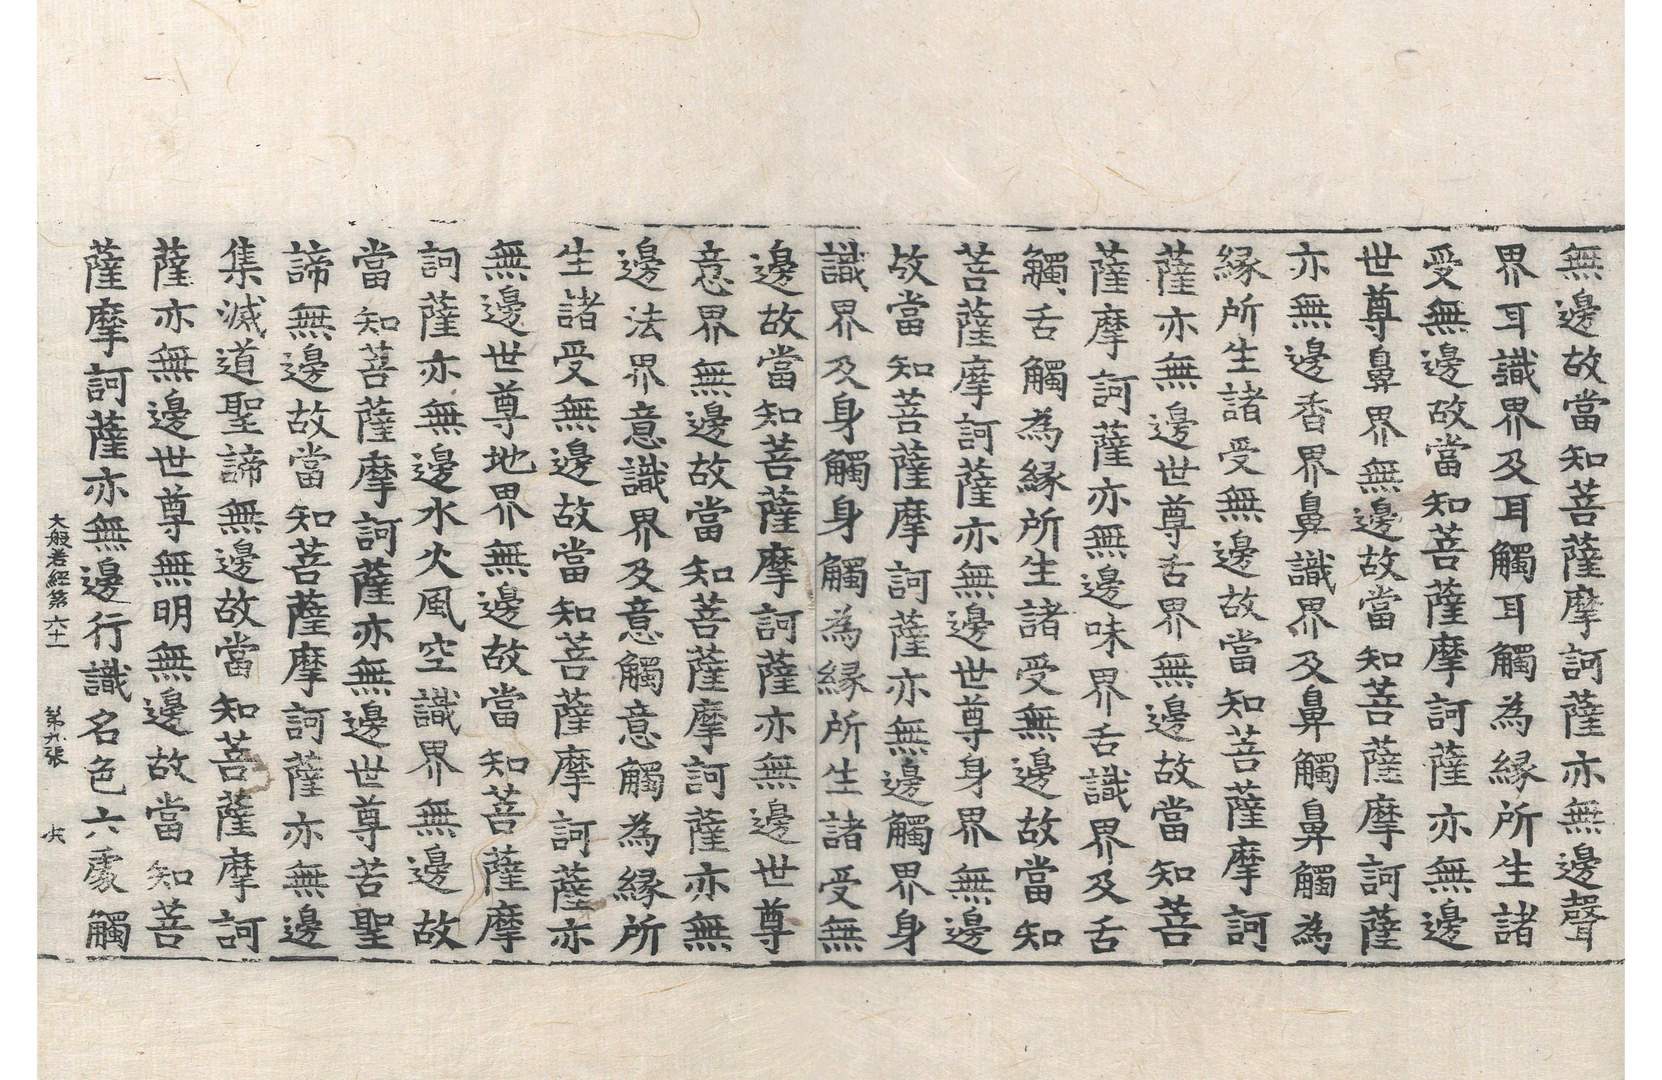 無邊故當知菩薩摩訶薩亦無邊聲
界耳識界及耳觸耳觸為緣所生諸
受無邊故當知菩薩摩訶薩亦無邊
世尊鼻界無邊故當知菩薩摩訶薩
亦無邊香界鼻識界及鼻觸鼻觸為
緣所生諸受無邊故當知菩薩摩訶
薩亦無邊世尊舌界無邊故當知菩
薩摩訶薩亦無邊味界舌識界及舌
觸舌觸為緣所生諸受無邊故當知
菩薩摩訶薩亦無邊世尊身界無邊
故當知菩薩摩訶薩亦無邊觸界身
識界及身觸身觸為緣所生諸受無
邊故當知菩薩摩訶薩亦無邊世尊
意界無邊故當知菩薩摩訶薩亦無
邊法界意識界及意觸意觸為緣所
生諸受無邊故當知菩薩摩訶薩亦
無邊世尊地界無邊故當知菩薩摩
訶薩亦無邊水火風空識界無邊故
當知菩薩摩訶薩亦無邊世尊苦聖
諦無邊故當知菩薩摩訶薩亦無邊
集滅道聖諦無邊故當知菩薩摩訶
薩亦無邊世尊無明無邊故當知菩
薩摩訶薩亦無邊行識名色六處觸
大般若經第六十一 第九張